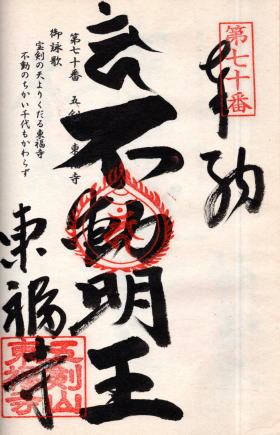 第七十番
奉納
不動明王
東福寺
第七十番 五剣 東 寺
御詠歌
宝剣の天よりくだる東福寺
不動のちかい千代もかわらず
五剣山
東福寺